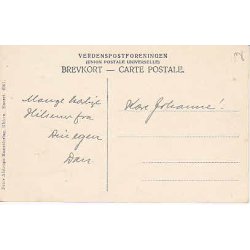 VERDENSPOSTFORENINGEN
(UNION POSTALE UNIVERSELLE)
BREVKORT — CARTE POSTALE.
Mange kærlige
Hilsener fra
Din egen
Dan
Kære Johanne!